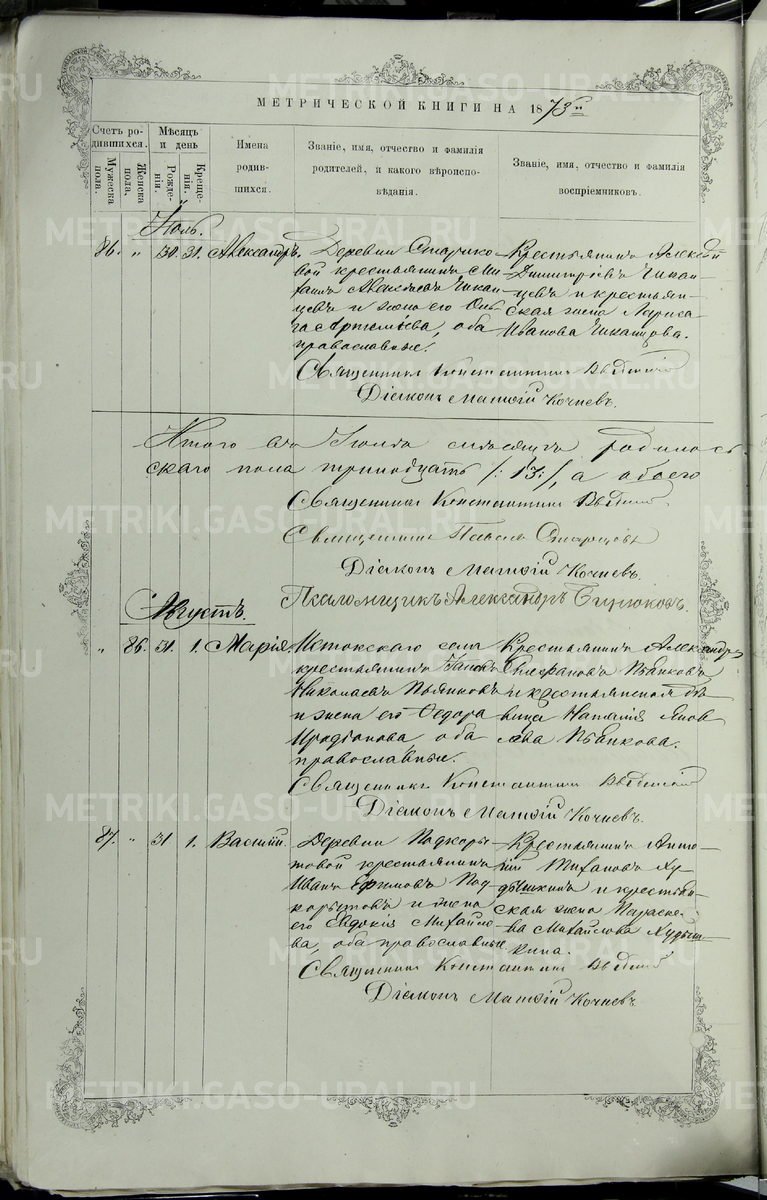 МЕТРИЧЕСКОЙ КНИГИ НА 1873й
Счетъ родившихся.
Мужеска пола.
Женска пола.
Мѣсяцъ и день
Рожденія.
Крещенія.
Имена родившихся.
Званіе, имя, отчество и фамилія родителей, и какого вѣроисповѣданія.
Званіе, имя, отчество и фамилія воспріемниковъ.
Іюль.
86. " 30. 31. Александръ.
Деревни Старико-
вой крестьянинъ
и жена его Оль-
га Артемьева, оба
православные.
Крестьянинъ Алексѣй
Димитріевъ
и крестьян-
ская жена Лариса
Иванова
Священникъ Константинъ
Діаконъ Матѳій Кочневъ.
Итого въ Іюлѣ мѣсяцѣ родилось
скаго пола тринадцать /:13:/, а обоего
Священникъ Константинъ
Священникъ Павелъ
Діаконъ Матѳій Кочневъ.
Псаломщикъ Александръ Бирюковъ.
Августъ.
" 86. 31. 1. Марія.
Истокскаго села
крестьянинъ
Николаевъ Пьянковъ
и жена его Ѳедора
Иродіонова, оба
православные.
Крестьянинъ Александръ
Стефановъ Пьянковъ
и крестьянская дѣ-
вица Наталія Яков-
лева Пьянкова.
Священникъ Константинъ
Діаконъ Матѳій Кочневъ.
87. " 31 1. Василій.
Деревни Подкоры-
товой крестьянинъ
Иванъ Ефимовъ Под-
корытовъ и жена
его Евдокія Михайло-
ва, оба православные
Крестьянинъ
и крестьян-
ская жена Параске-
ва Михайлова
Священникъ Константинъ
Діаконъ Матѳій Кочневъ.
METRIKI.GASO-URAL.RU